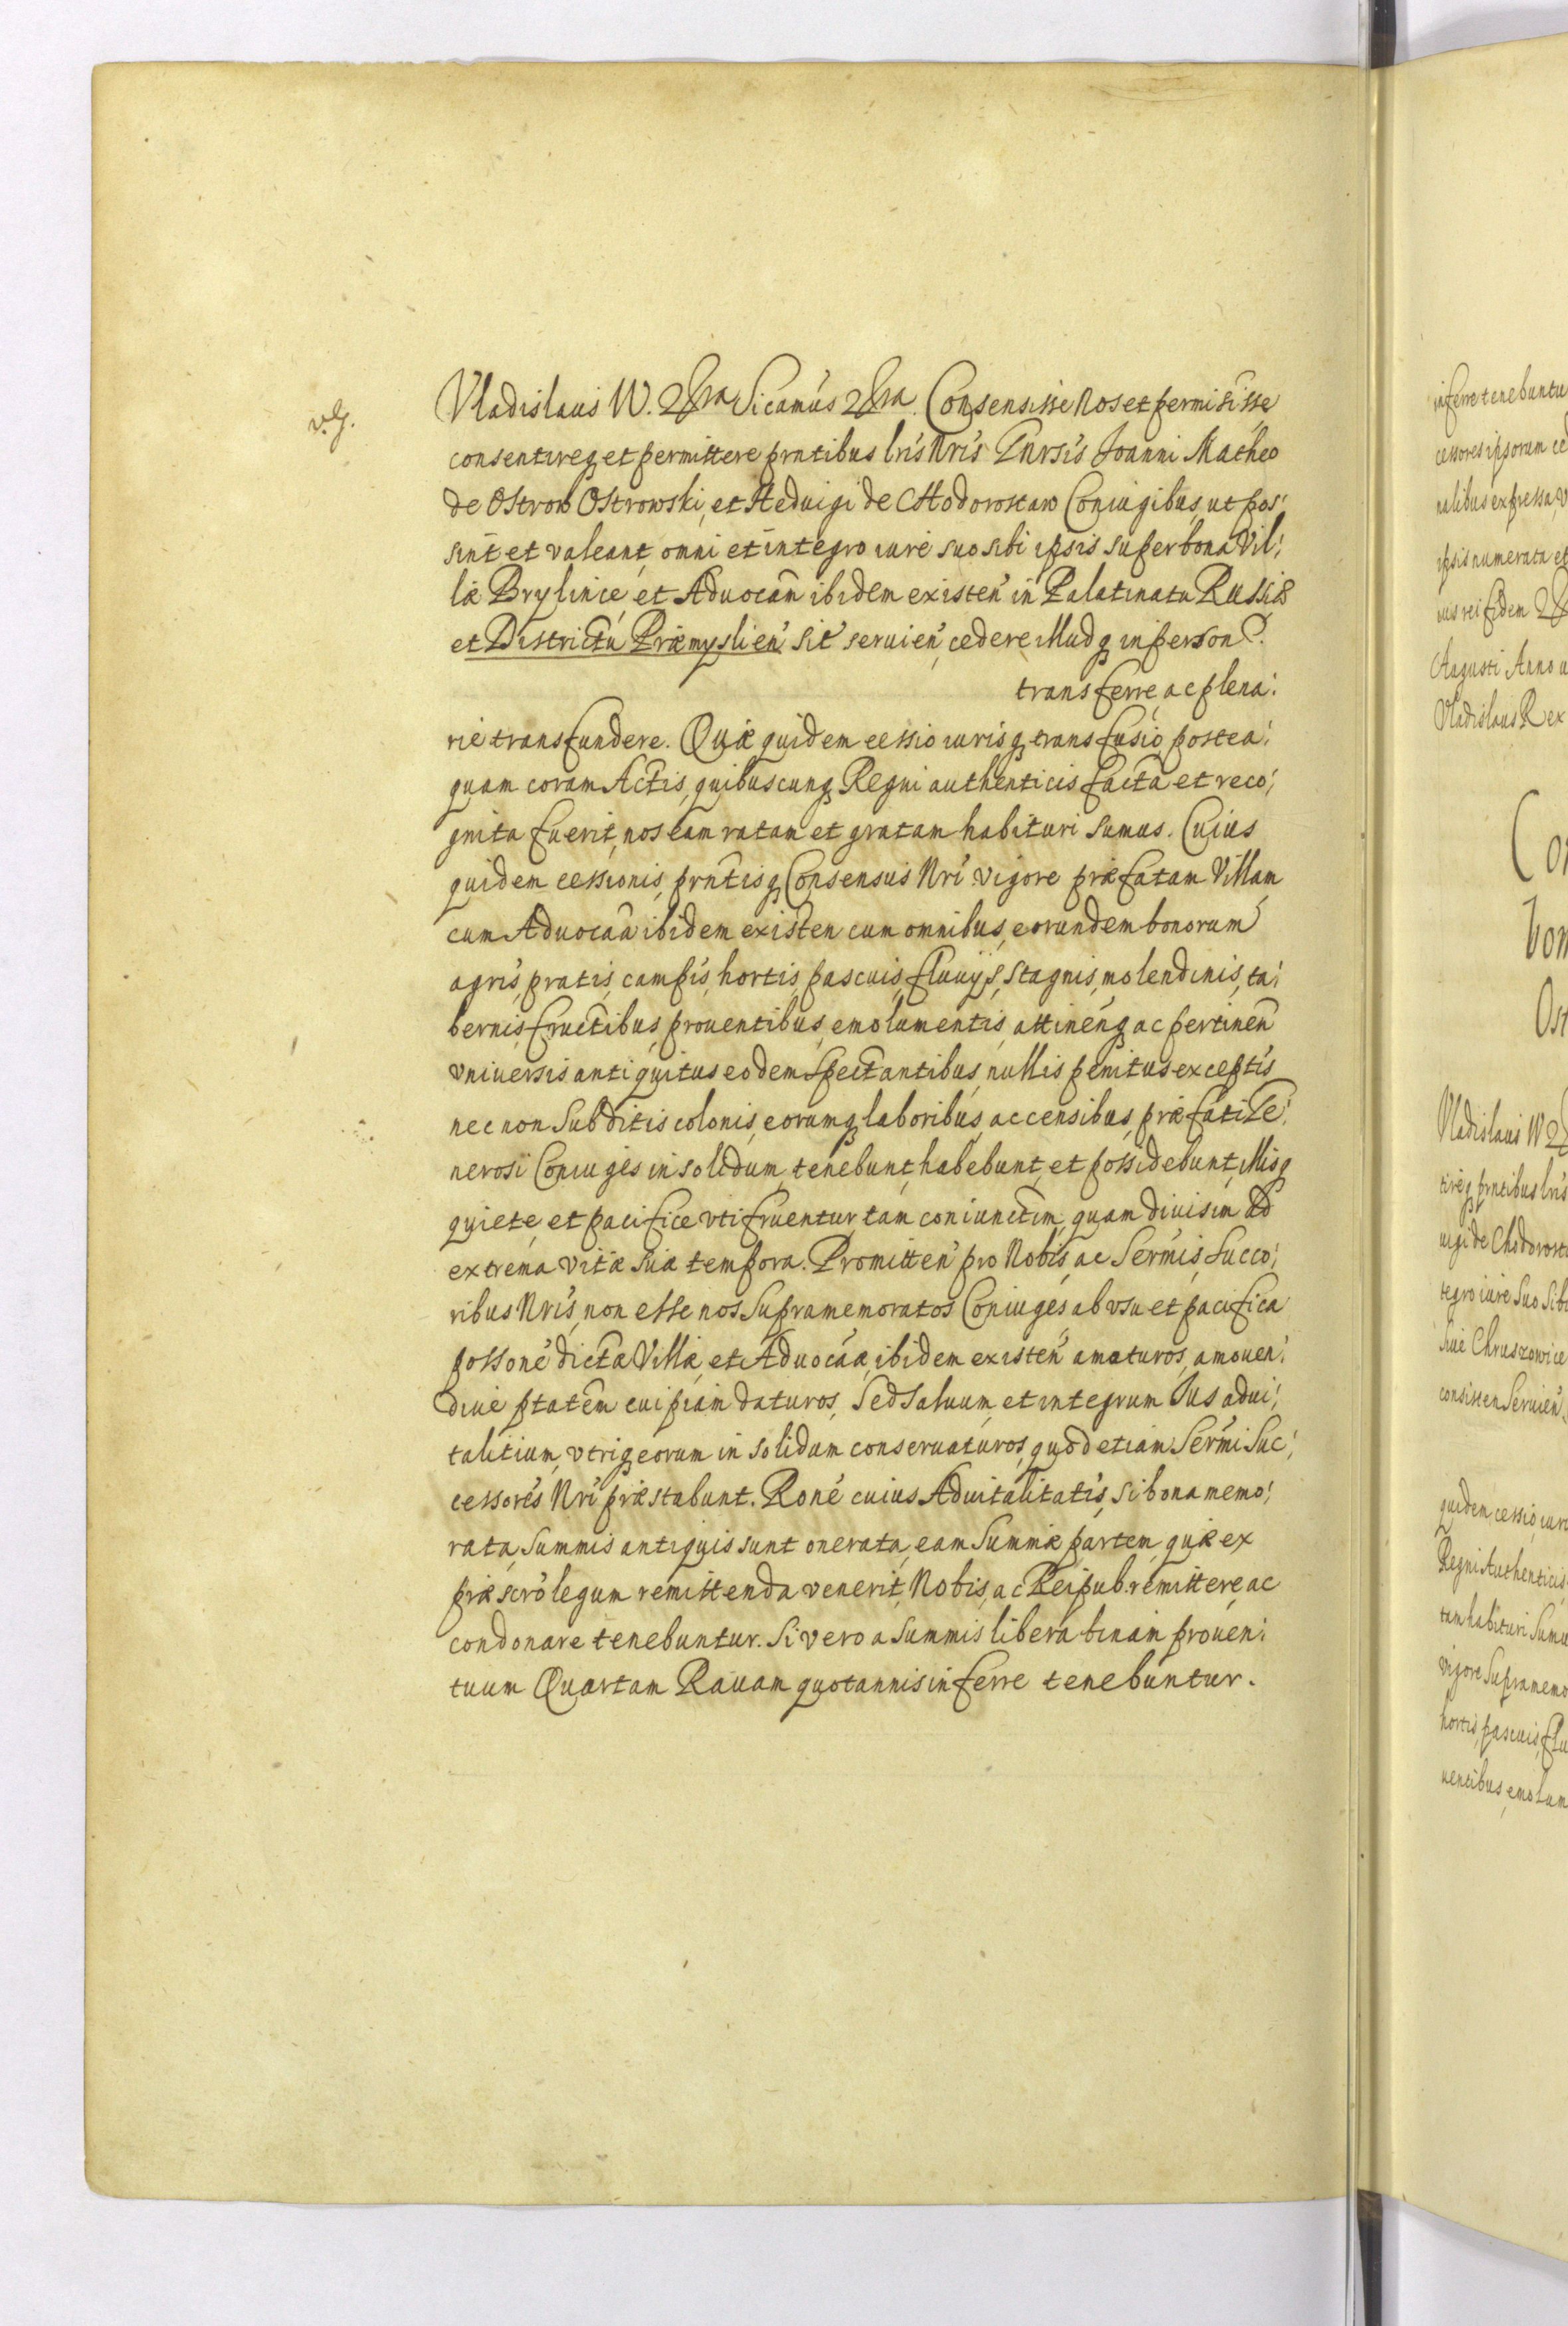 v. g.
Vladislaus IV. &ra Sicamus &ra. Consensisse Nos et permisisse
consentireq et permittere prntibus lris Nris Gnrsis Joanni Matheo
de Ostrow Ostrowski, et Heduigi de CHodorostaw Coniugibus, ut pos:
sint et valeant, omni et integro iure suo sibi ipsis super bona Vil:
læ Brylince, et Aduocam ibidem existen in Palatinatu Russiæ
et Districtu Præmyslien sit seruien, cedere illudq in person
transferre, ac plena:
rie transfundere. Quæ quidem cessio iurisq transfusio, postea:
quam coram Actis, quibuscunq Regni authenticis facta et reco:
gnita fuerit, nos eam ratam et gratam habituri sumus. Cuius
quidem cessionis, prntisq Consensus Nri vigore præfatam Villam
cum Aduocaa ibidem existen cum omnibus, eorundem bonorum
agris, pratis, campis, hortis, pascuis, fluuijs, stagnis, molendinis, ta:
bernis, fructibus, prouentibus, emolumentis, attinenq ac pertinen
vniuersis antiquitus eodem spectantibus, nullis penitus exceptis
nec non Subditis colonis, eorumq laboribus, ac censibus, præfati Ge:
nerosi Coniuges in solidum, tenebunt, habebunt, et possidebunt, illisq
quiete, et pacifice vti fruentur, tam coniunctim, quam diuisim ad
extrema vitæ suæ tempora. Promitten pro Nobis, ac Sermis, Succo:
ribus Nris, non esse nos Supramemoratos Coniuges, ab vsu et pacifica
possone dictæ Villæ, et Aduocaæ, ibidem existen amoturos, amouen:
diue ptatem cuipiam daturos, Sed Saluum, et integrum Jus adui:
talitium, vtriq eorum in solidum conseruaturos, quod etiam Sermi Suc:
cessores Nri præstabunt. Rone cuius Aduitalitatis, si bona memo:
rata, Summis antiquis sunt onerata, eam Summæ partem, quæ ex
præscro legum remittenda venerit, Nobis, ac Reipub. remittere, ac
condonare tenebuntur. Si vero a Summis libera binam prouen:
tuum Quartam Rauam quotannis inferre tenebuntur.
inferre tenebuntu
cessores ipsorum ce
nalibus expressa, v
ipsis numerata et
ius rei fidem
Augusti Anno
Vladislaus Rex
Con
bon
Ost
Vladislaus IV
tireq prntibus lris
uigi de Chodorosta
tegro iure Suo Sibi
siue Chruszowice
consisten Seruien
quidem, cessio, iuri
Regni Authenticis
tam habituri Sumu
vigore Supramemo
hortis, pascuis, flu
uentibus, emolum